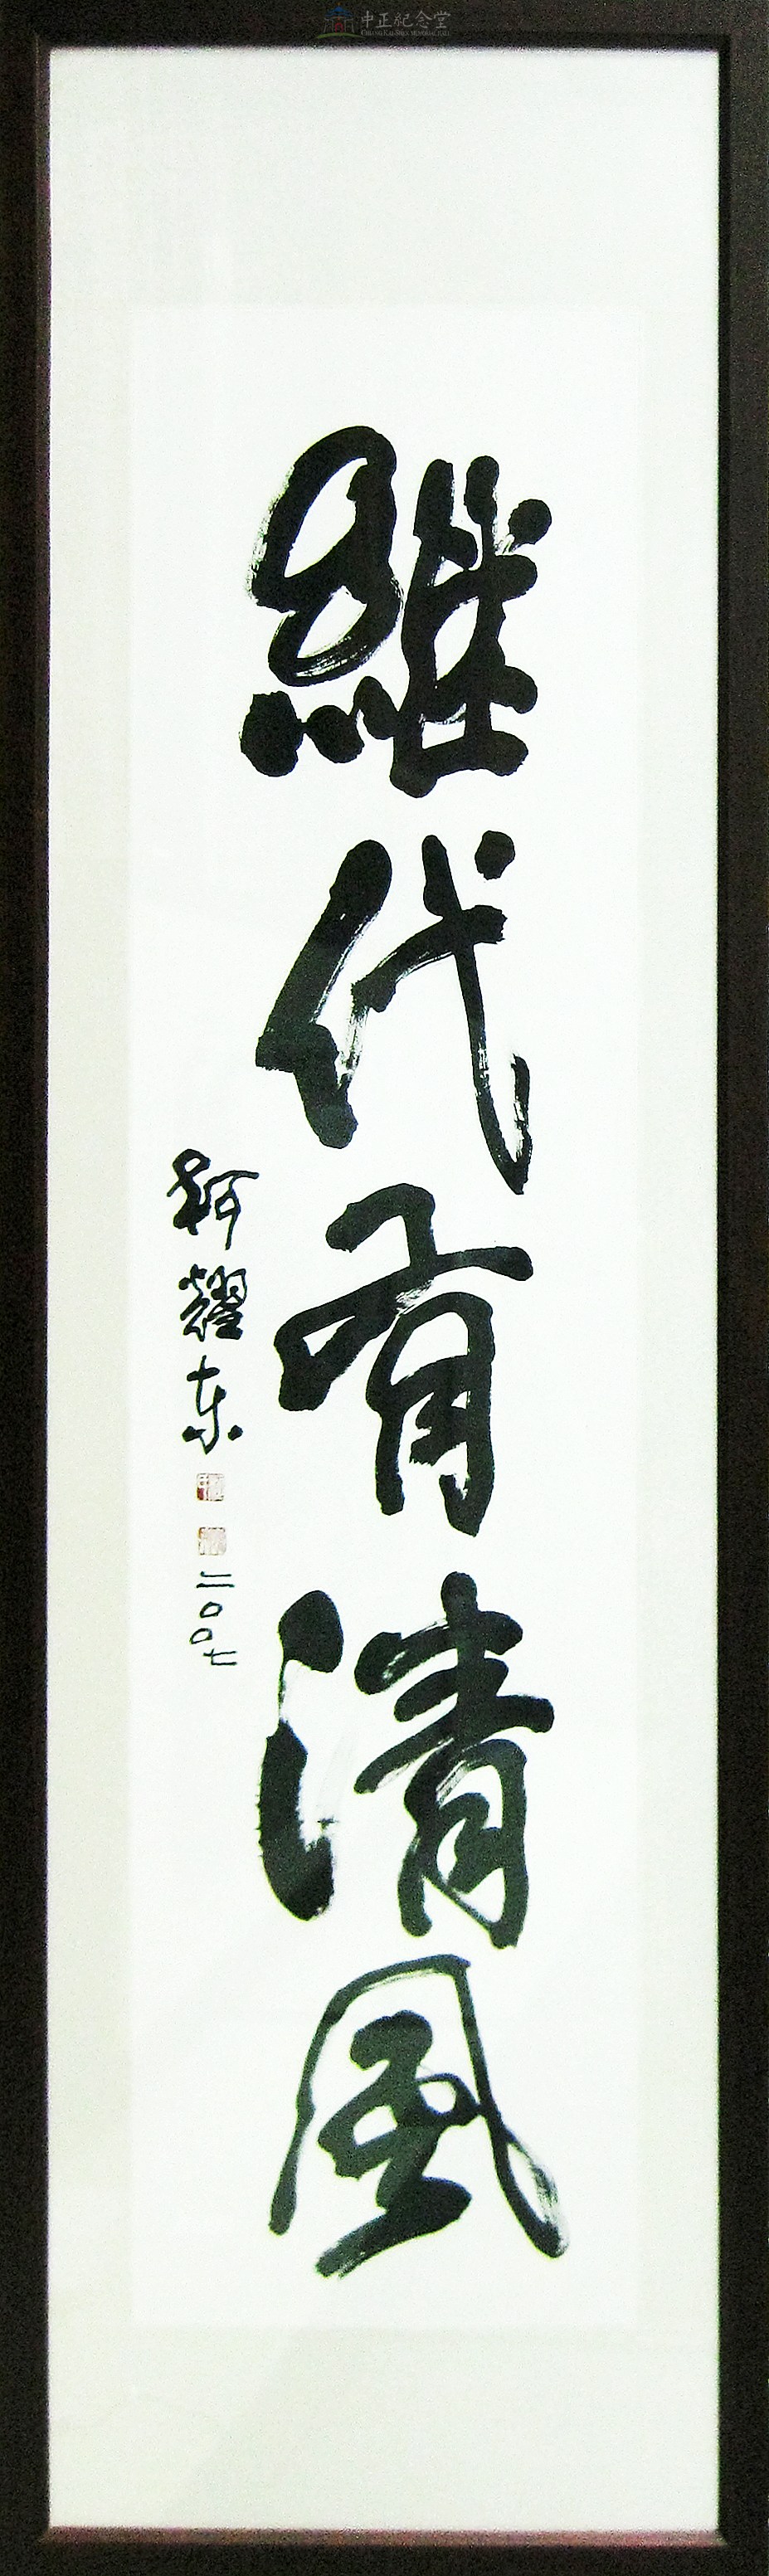 中正紀念堂
CHIANG KAI-SHEK MEMORIAL HALL
継代有清風
柯耀东
二〇〇七